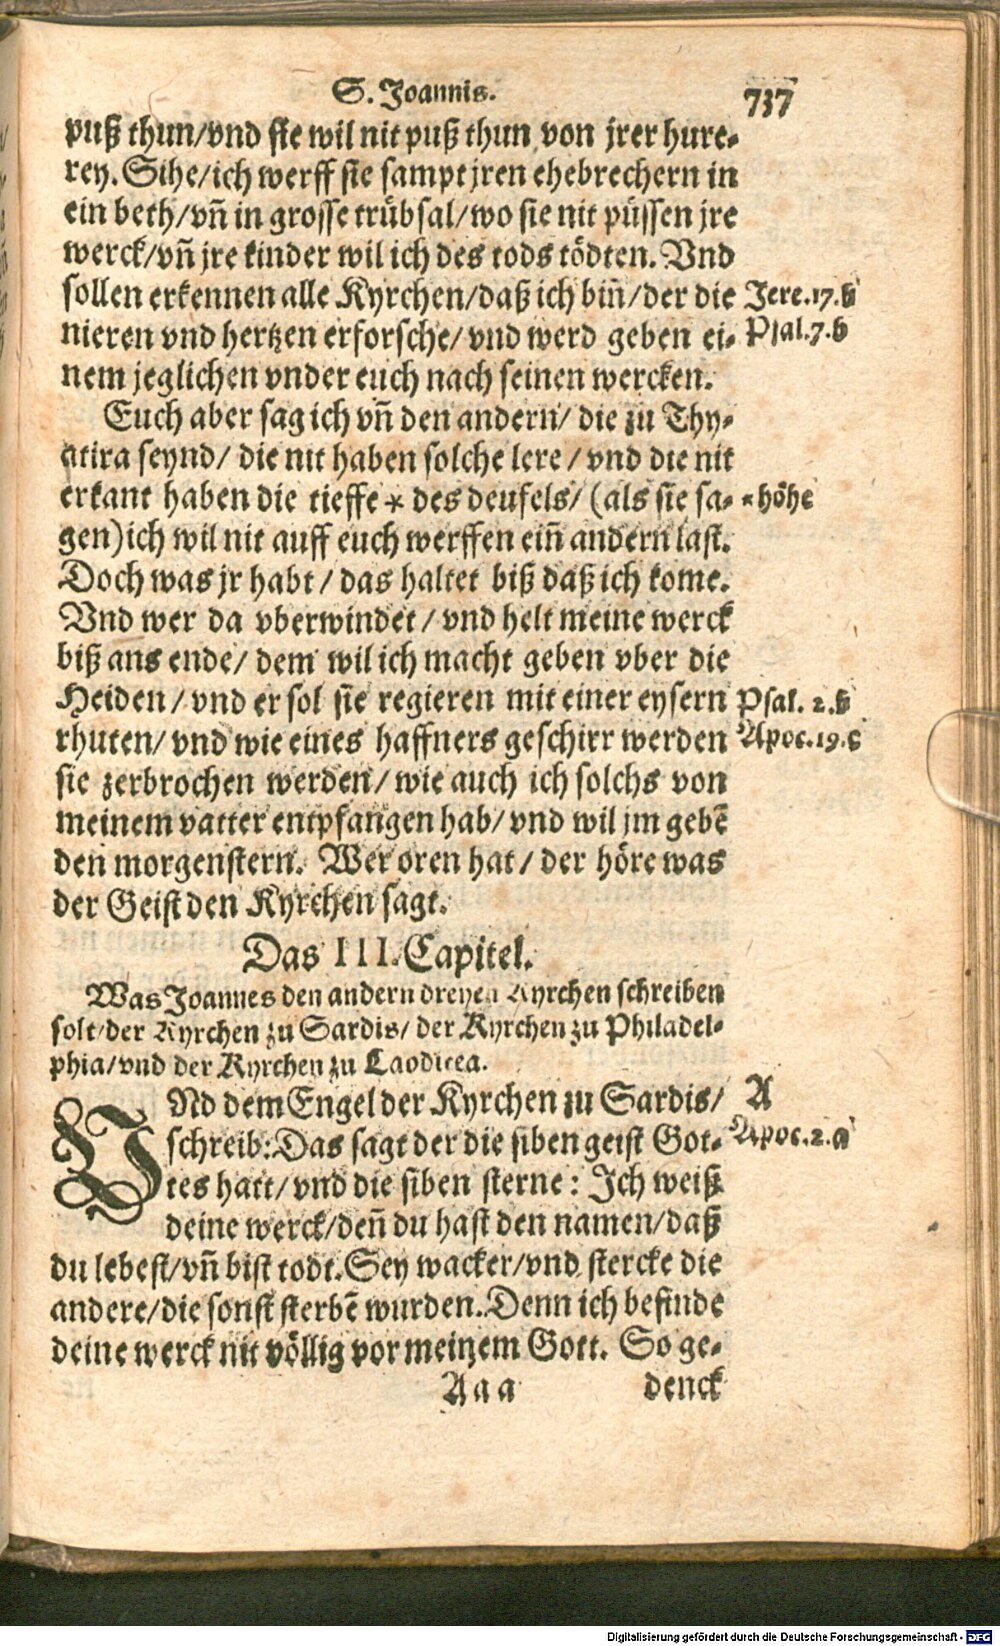 S. Joannis. 737
puß thun/vnd sie wil nit puß thun von jrer hure-
rey. Sihe/ich werff sie sampt jren ehebrechern in
ein beth/vñ in grosse trübsal/wo sie nit püssen jre
werck/vñ jre kinder wil ich des tods tödten. Vnd
sollen erkennen alle Kyrchen/daß ich biñ/der die Jere.17.b
nieren vnd hertzen erforsche/vnd werd geben ei- Psal.7.b
nem jeglichen vnder euch nach seinen wercken.
Euch aber sag ich vñ den andern/ die zu Thy-
atira seynd/ die nit haben solche lere/ vnd die nit
erkant haben die tieffe * des deufels/ (als sie sa- * höhe
gen) ich wil nit auff euch werffen eiñ andern last.
Doch was jr habt/ das haltet biß daß ich kome.
Vnd wer da vberwindet/ vnd helt meine werck
biß ans ende/ dem wil ich macht geben vber die
Heiden/ vnd er sol sie regieren mit einer eysern Psal. 2.b
rhuten/ vnd wie eines haffners geschirr werden Apoc.19.c
sie zerbrochen werden/ wie auch ich solchs von
meinem vatter entpfangen hab/ vnd wil jm gebẽ
den morgenstern. Wer oren hat/ der höre was
der Geist den Kyrchen sagt.
Das III. Capitel.
Was Joannes den andern dreyen Kyrchen schreiben
solt/der Kyrchen zu Sardis/ der Kyrchen zu Philadel-
phia/vnd der Kyrchen zu Laodicea.
VNd dem Engel der Kyrchen zu Sardis/ A
schreib: Das sagt der die siben geist Got- Apoc.2.a
tes hatt/ vnd die siben sterne: Ich weiß
deine werck/deñ du hast den namen/daß
du lebest/vñ bist todt. Sey wacker/vnd stercke die
andere/die sonst sterbẽ wurden. Denn ich befinde
deine werck nit völlig vor meinem Gott. So ge-
Aaa denck
Digitalisierung gefördert durch die Deutsche Forschungsgemeinschaft - DFG